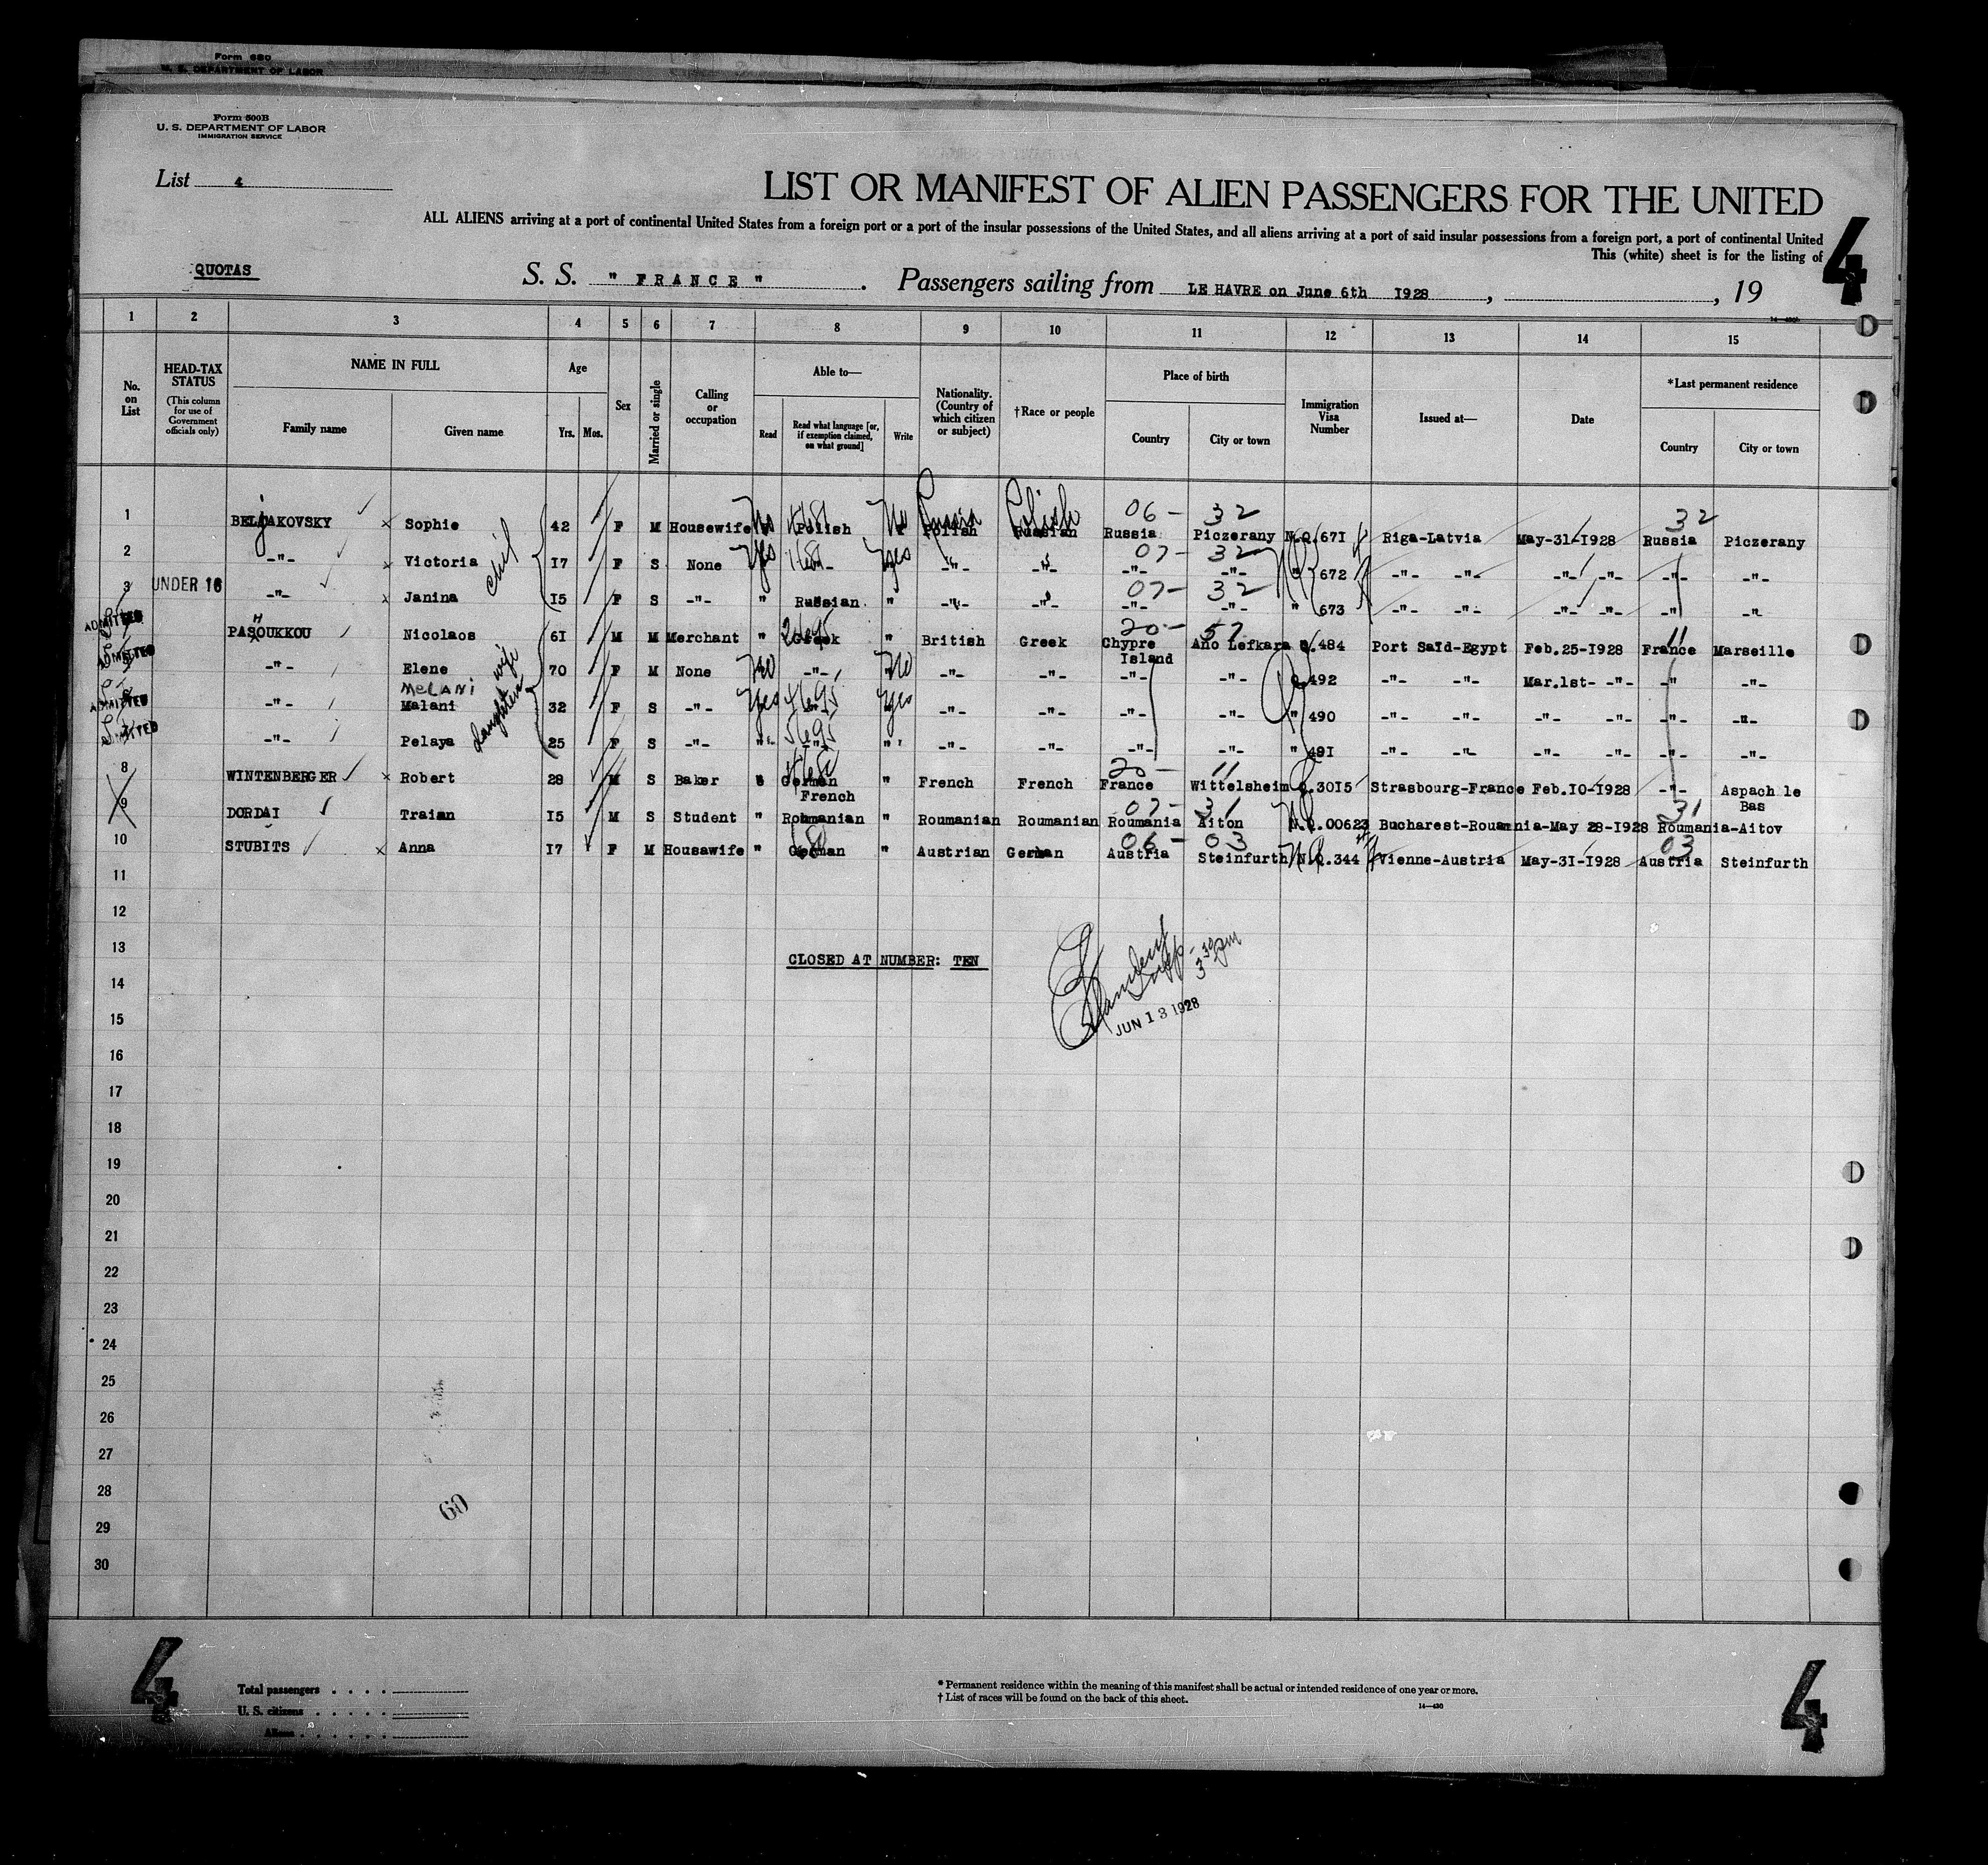 Form 680
U. S. DEPARTMENT OF LABOR
Form 500B
U. S. DEPARTMENT OF LABOR
IMMIGRATION SERVICE
List 4
LIST OR MANIFEST OF ALIEN PASSENGERS FOR THE UNITED
ALL ALIENS arriving at a port of continental United States from a foreign port or a port of the insular possessions of the United States, and all aliens arriving at a port of said insular possessions from a foreign port, a port of continental United
This (white) sheet is for the listing of
4
QUOTAS
S. S. " FRANCE ". Passengers sailing from LE HAVRE on June 6th 1928, , 19
1 2 3 4 5 6 7 8 9 10 11 12 13 14 15
No. on List
HEAD-TAX STATUS
(This column for use of Government officials only)
NAME IN FULL
Family name Given name
Age
Yrs. Mos.
Sex
Married or single
Calling or occupation
Able to—
Read
Read what language [or, if exemption claimed, on what ground]
Write
Nationality. (Country of which citizen or subject)
†Race or people
Place of birth
Country City or town
Immigration Visa Number
Issued at—
Date
*Last permanent residence
Country City or town
06 - 32 32
1 BELJAKOVSKY Sophie 42 F M Housewife No Polish No Polish Russia Russian Polish Russia Piczerany N.Q.671 Riga-Latvia May-31-1928 Russia Piczerany
07- 32
2 -"- Victoria 17 F S None Yes -"- Yes -"- -"- -"- -"- " 672 -"- -"- -"- -"- -"- -"-
07- 32
3 UNDER 16 -"- Janina 15 F S -"- " Russian " -"- -"- -"- -"- " 673 -"- -"- -"- -"- -"- -"-
20- 57 11
ADMITTED PASOUKKOU H Nicolaos 61 M M Merchant " Greek " British Greek Chypre Island Ano Lefkara Q.484 Port Saïd-Egypt Feb.25-1928 France Marseille
ADMITTED -"- Elene wife 70 F M None No -"- No -"- -"- -"- -"- Q.492 -"- -"- Mar.1st- -"- -"- -"-
MELANI
ADMITTED -"- Malani 32 F S -"- Yes -"- Yes -"- -"- -"- -"- " 490 -"- -"- -"- -"- -"- -"-
ADMITTED -"- Pelaya 25 F S -"- " -"- " -"- -"- -"- -"- " 491 -"- -"- -"- -"- -"- -"-
20- 11
8 WINTENBERGER Robert 28 M S Baker " German French " French French France Wittelsheim Q.3015 Strasbourg-France Feb.10-1928 -"- Aspach le Bas
07- 31 31
9 DORDAI Traian 15 M S Student " Roumanian " Roumanian Roumanian Roumania Aiton N.Q.00623 Bucharest-Roumania-May 28-1928 Roumania-Aitov
06 - 03 03
10 STUBITS Anna 17 F M Housewife " German " Austrian German Austria Steinfurth N.Q.344 Vienne-Austria May-31-1928 Austria Steinfurth
11
12
13
CLOSED AT NUMBER: TEN
3 30 pm
JUN 13 1928
14
15
16
17
18
19
20
21
22
23
24
25
26
27
28
60
29
30
4
Total passengers . . . .
U. S. citizens . . . . .
Aliens . . . . . .
* Permanent residence within the meaning of this manifest shall be actual or intended residence of one year or more.
† List of races will be found on the back of this sheet.
14—430
4